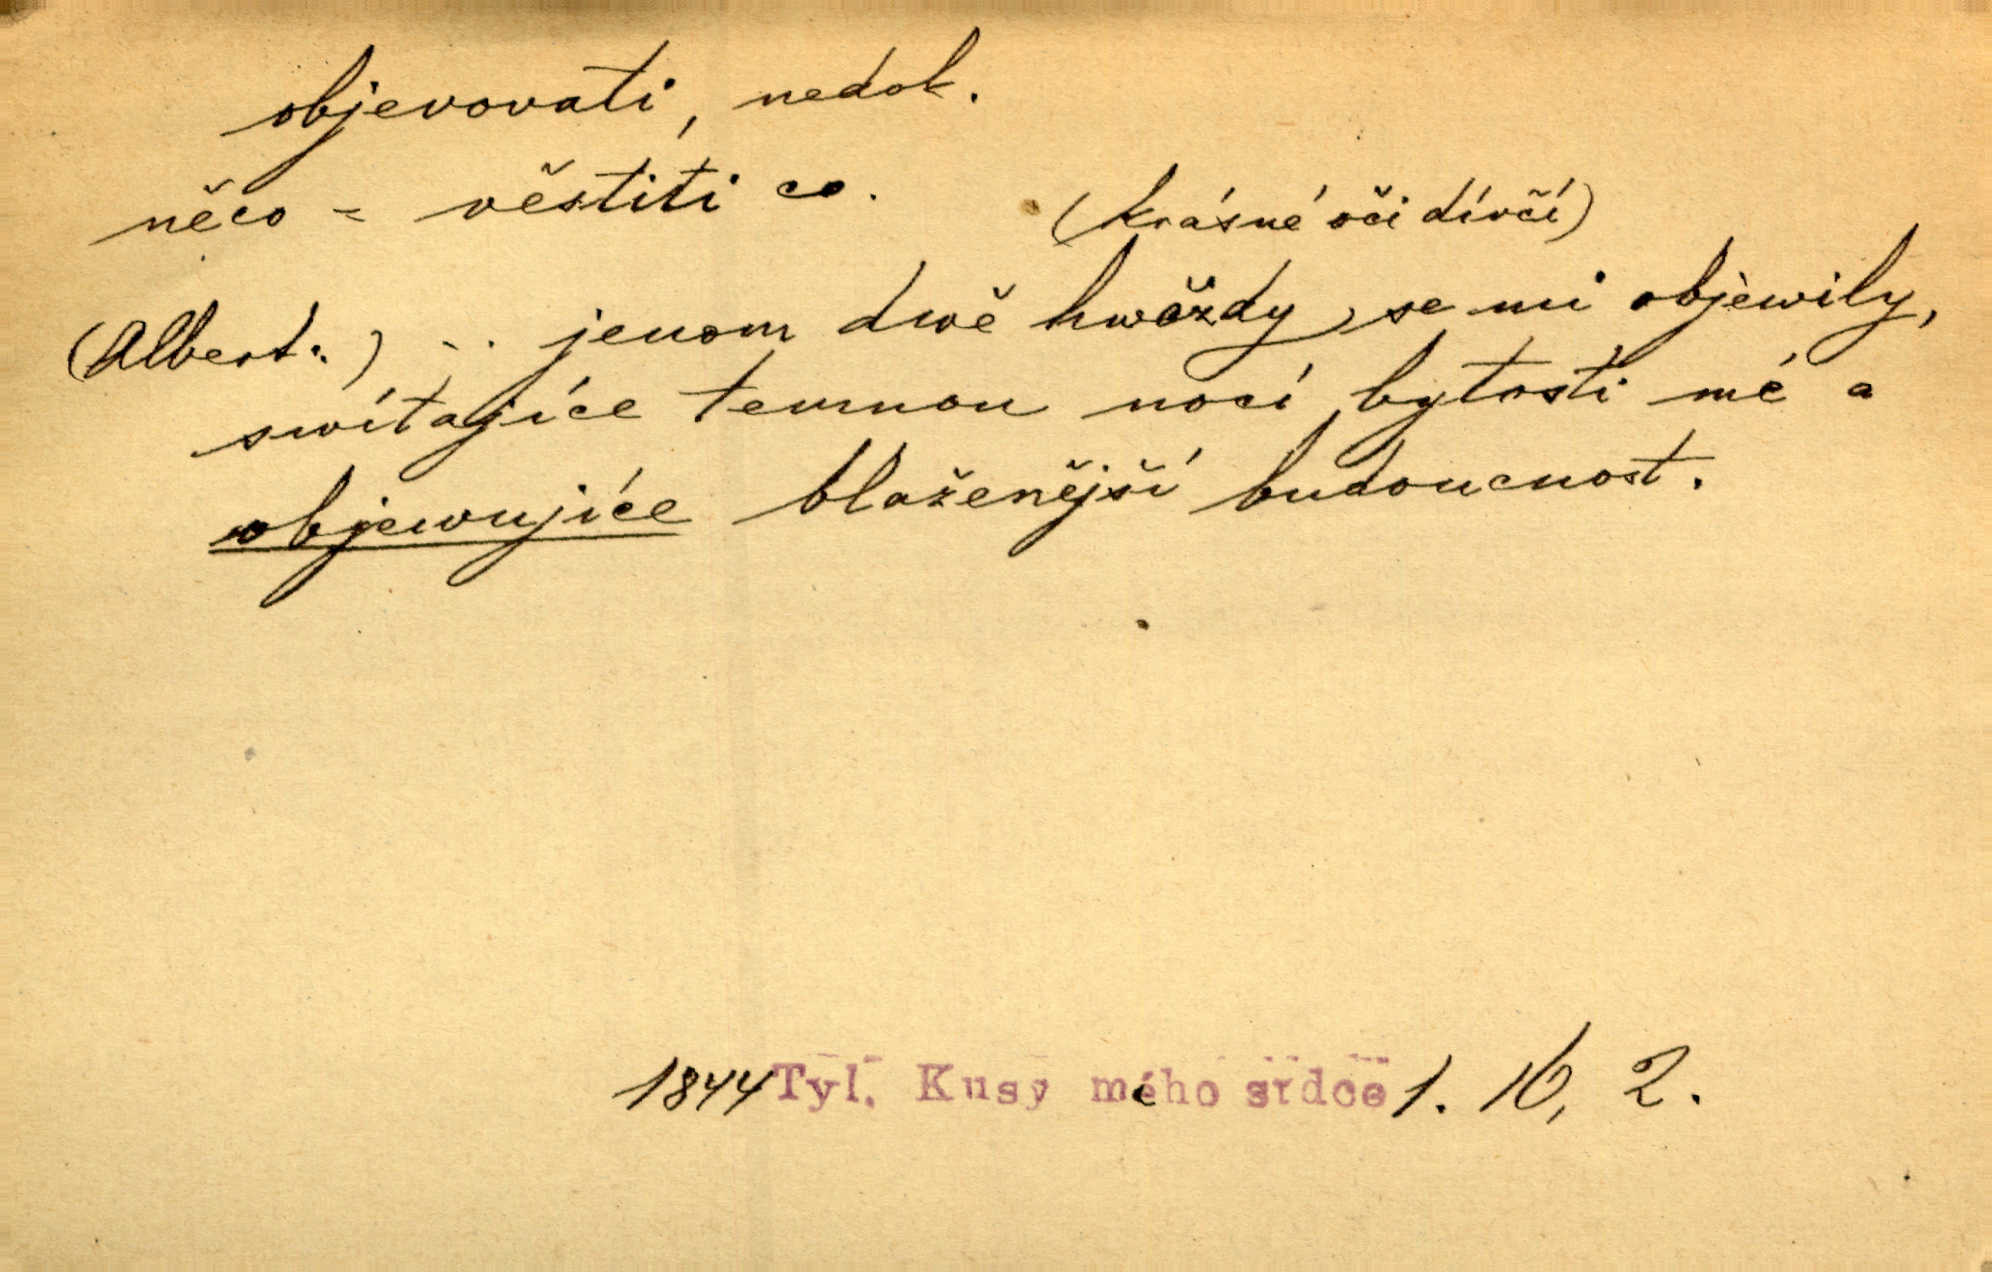 objevovati, nedok.
něco = věstiti co.
(krásné oči dívčí)
(Albert:) .. jenom dwě hwězdy se mi objewily,
swítajíce temnou nocí bytosti mé a
objewujíce blaženější budoucnost.
1844 Tyl. Kusy mého srdce 1. 16, 2.